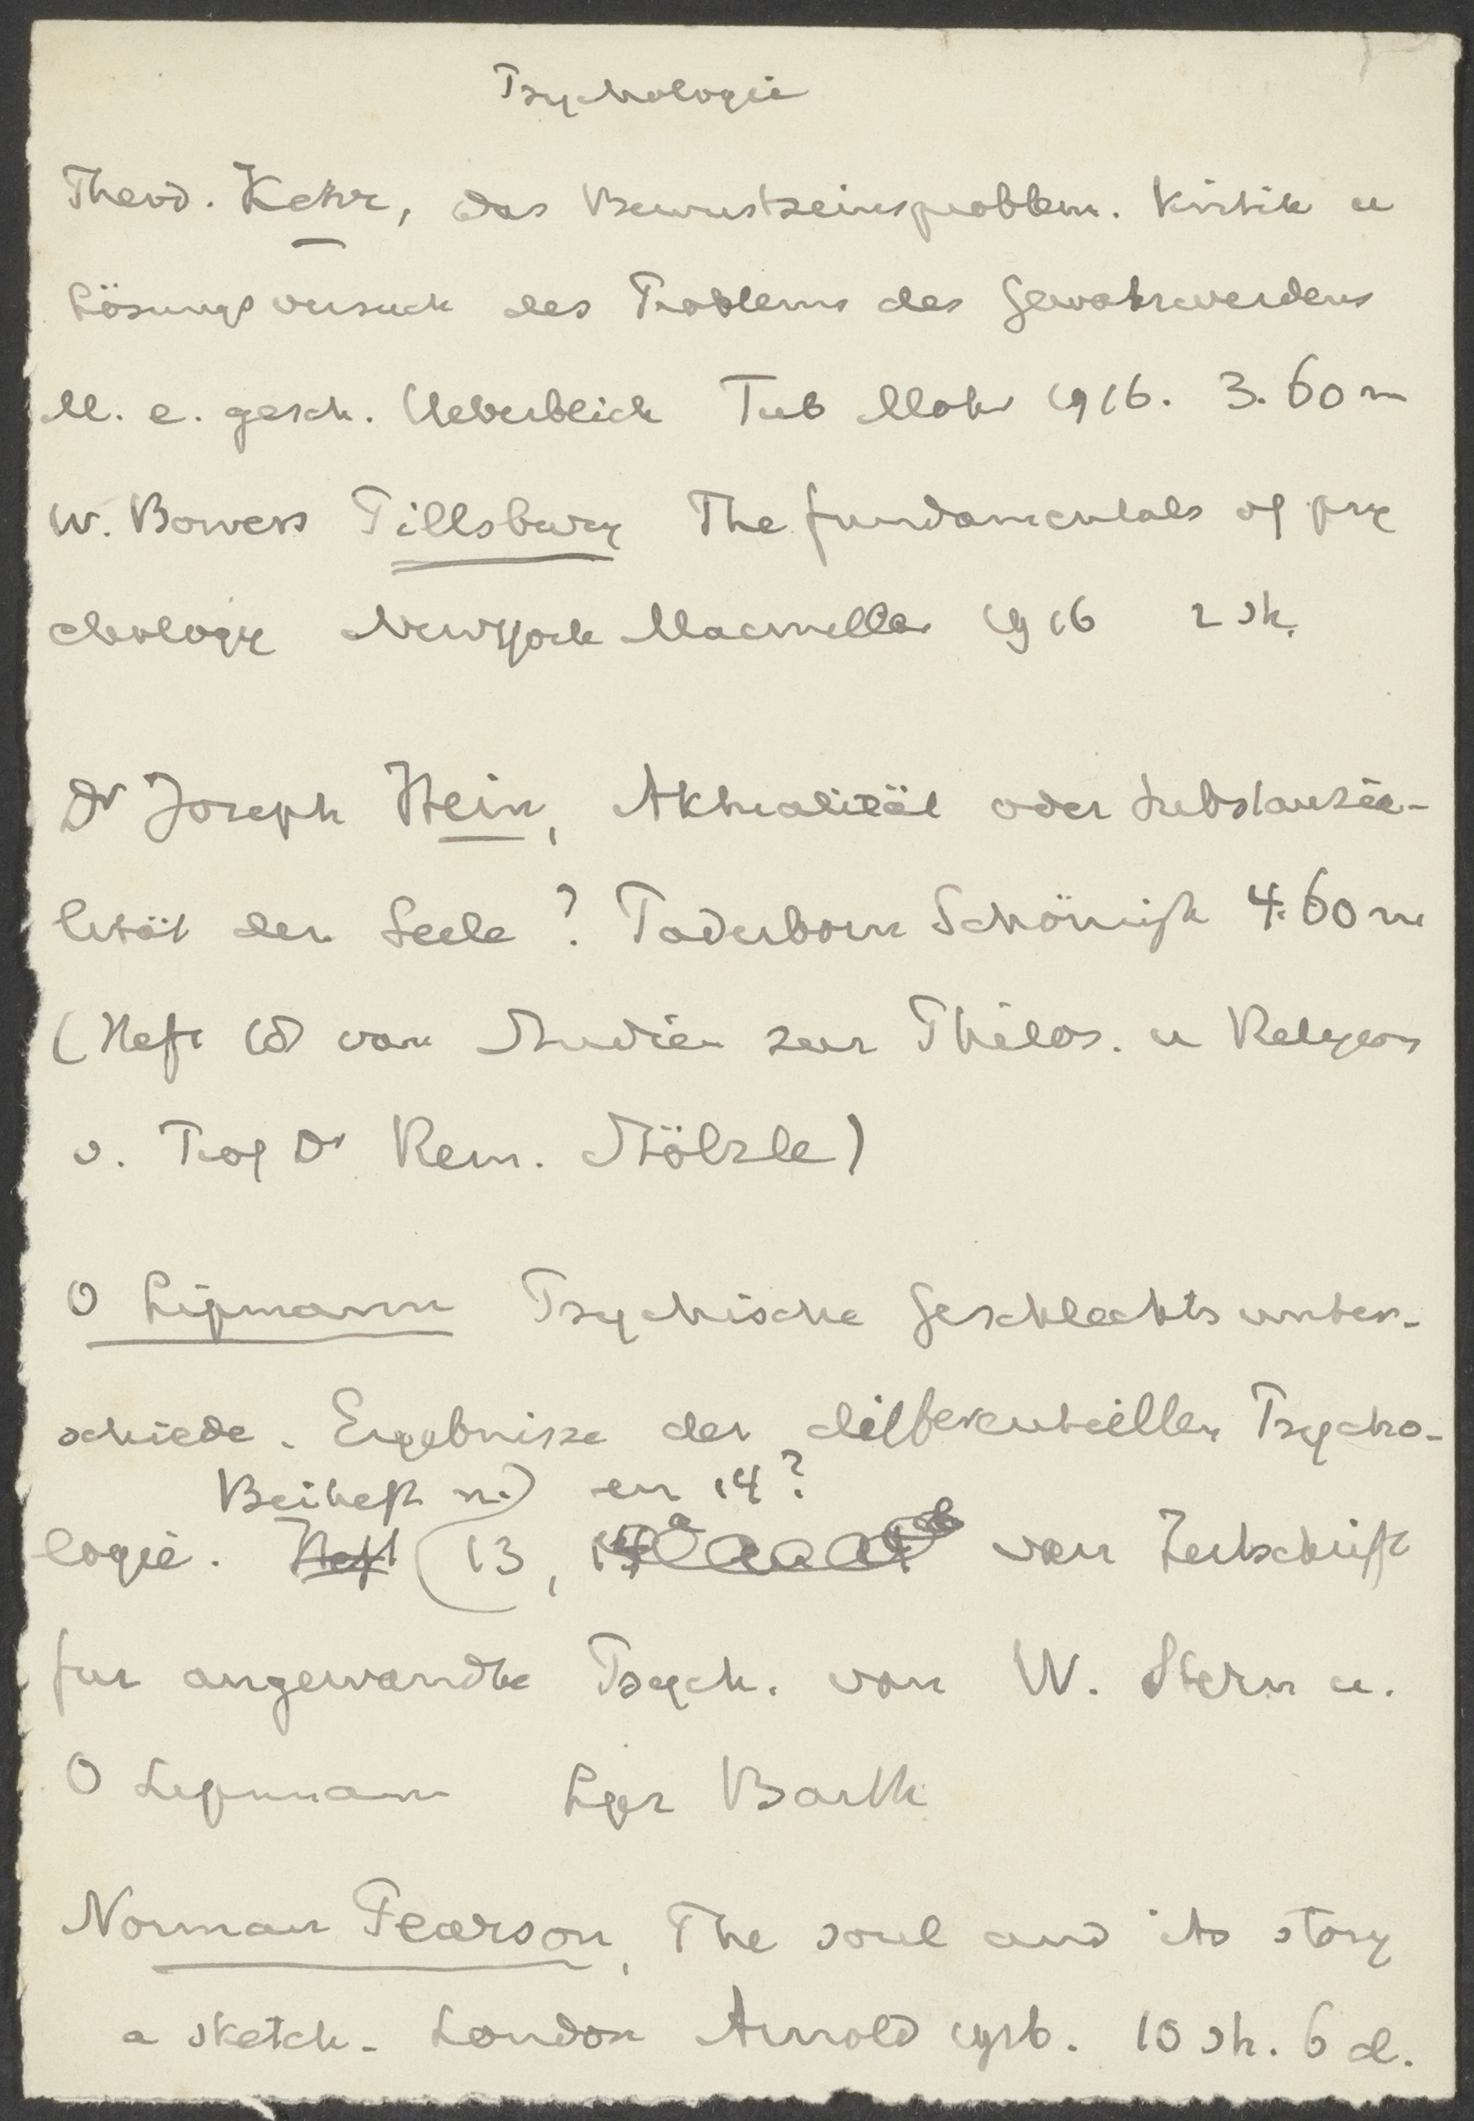 Psychologie
Theod. Kehr, das Bewustseinsproblem. Kritik u
Lösungsversuch des Problems des Gewahrwerdens
M. e. gesch. Ueberblick Tub Mohr 1916. 3.60 m
W. Bowers Pillsbury The fundamentals of psy
chology New York Macmillan 1916 2 sh.
Dr Joseph Hein, Aktualität oder Substanzia-
lität der Seele? Paderborn Schöningh 4.60 m
(Heft 18 van Studien zur Philos. u Religion
v. Prof Dr Rem. Stölzle)
O Lipmann Psychische Geschlechtsunter-
schiede. Ergebnisse der differentiellen Psycho-
Beiheft n.) en 14?
logie. Heft (13, van Zeitschrift
fur angewandte Psych. von W. Stern u.
O Lipmann Lpz Barth
Norman Pearson, The soul and its story
a sketch. London Arnold 1916. 10 sh. 6 d.